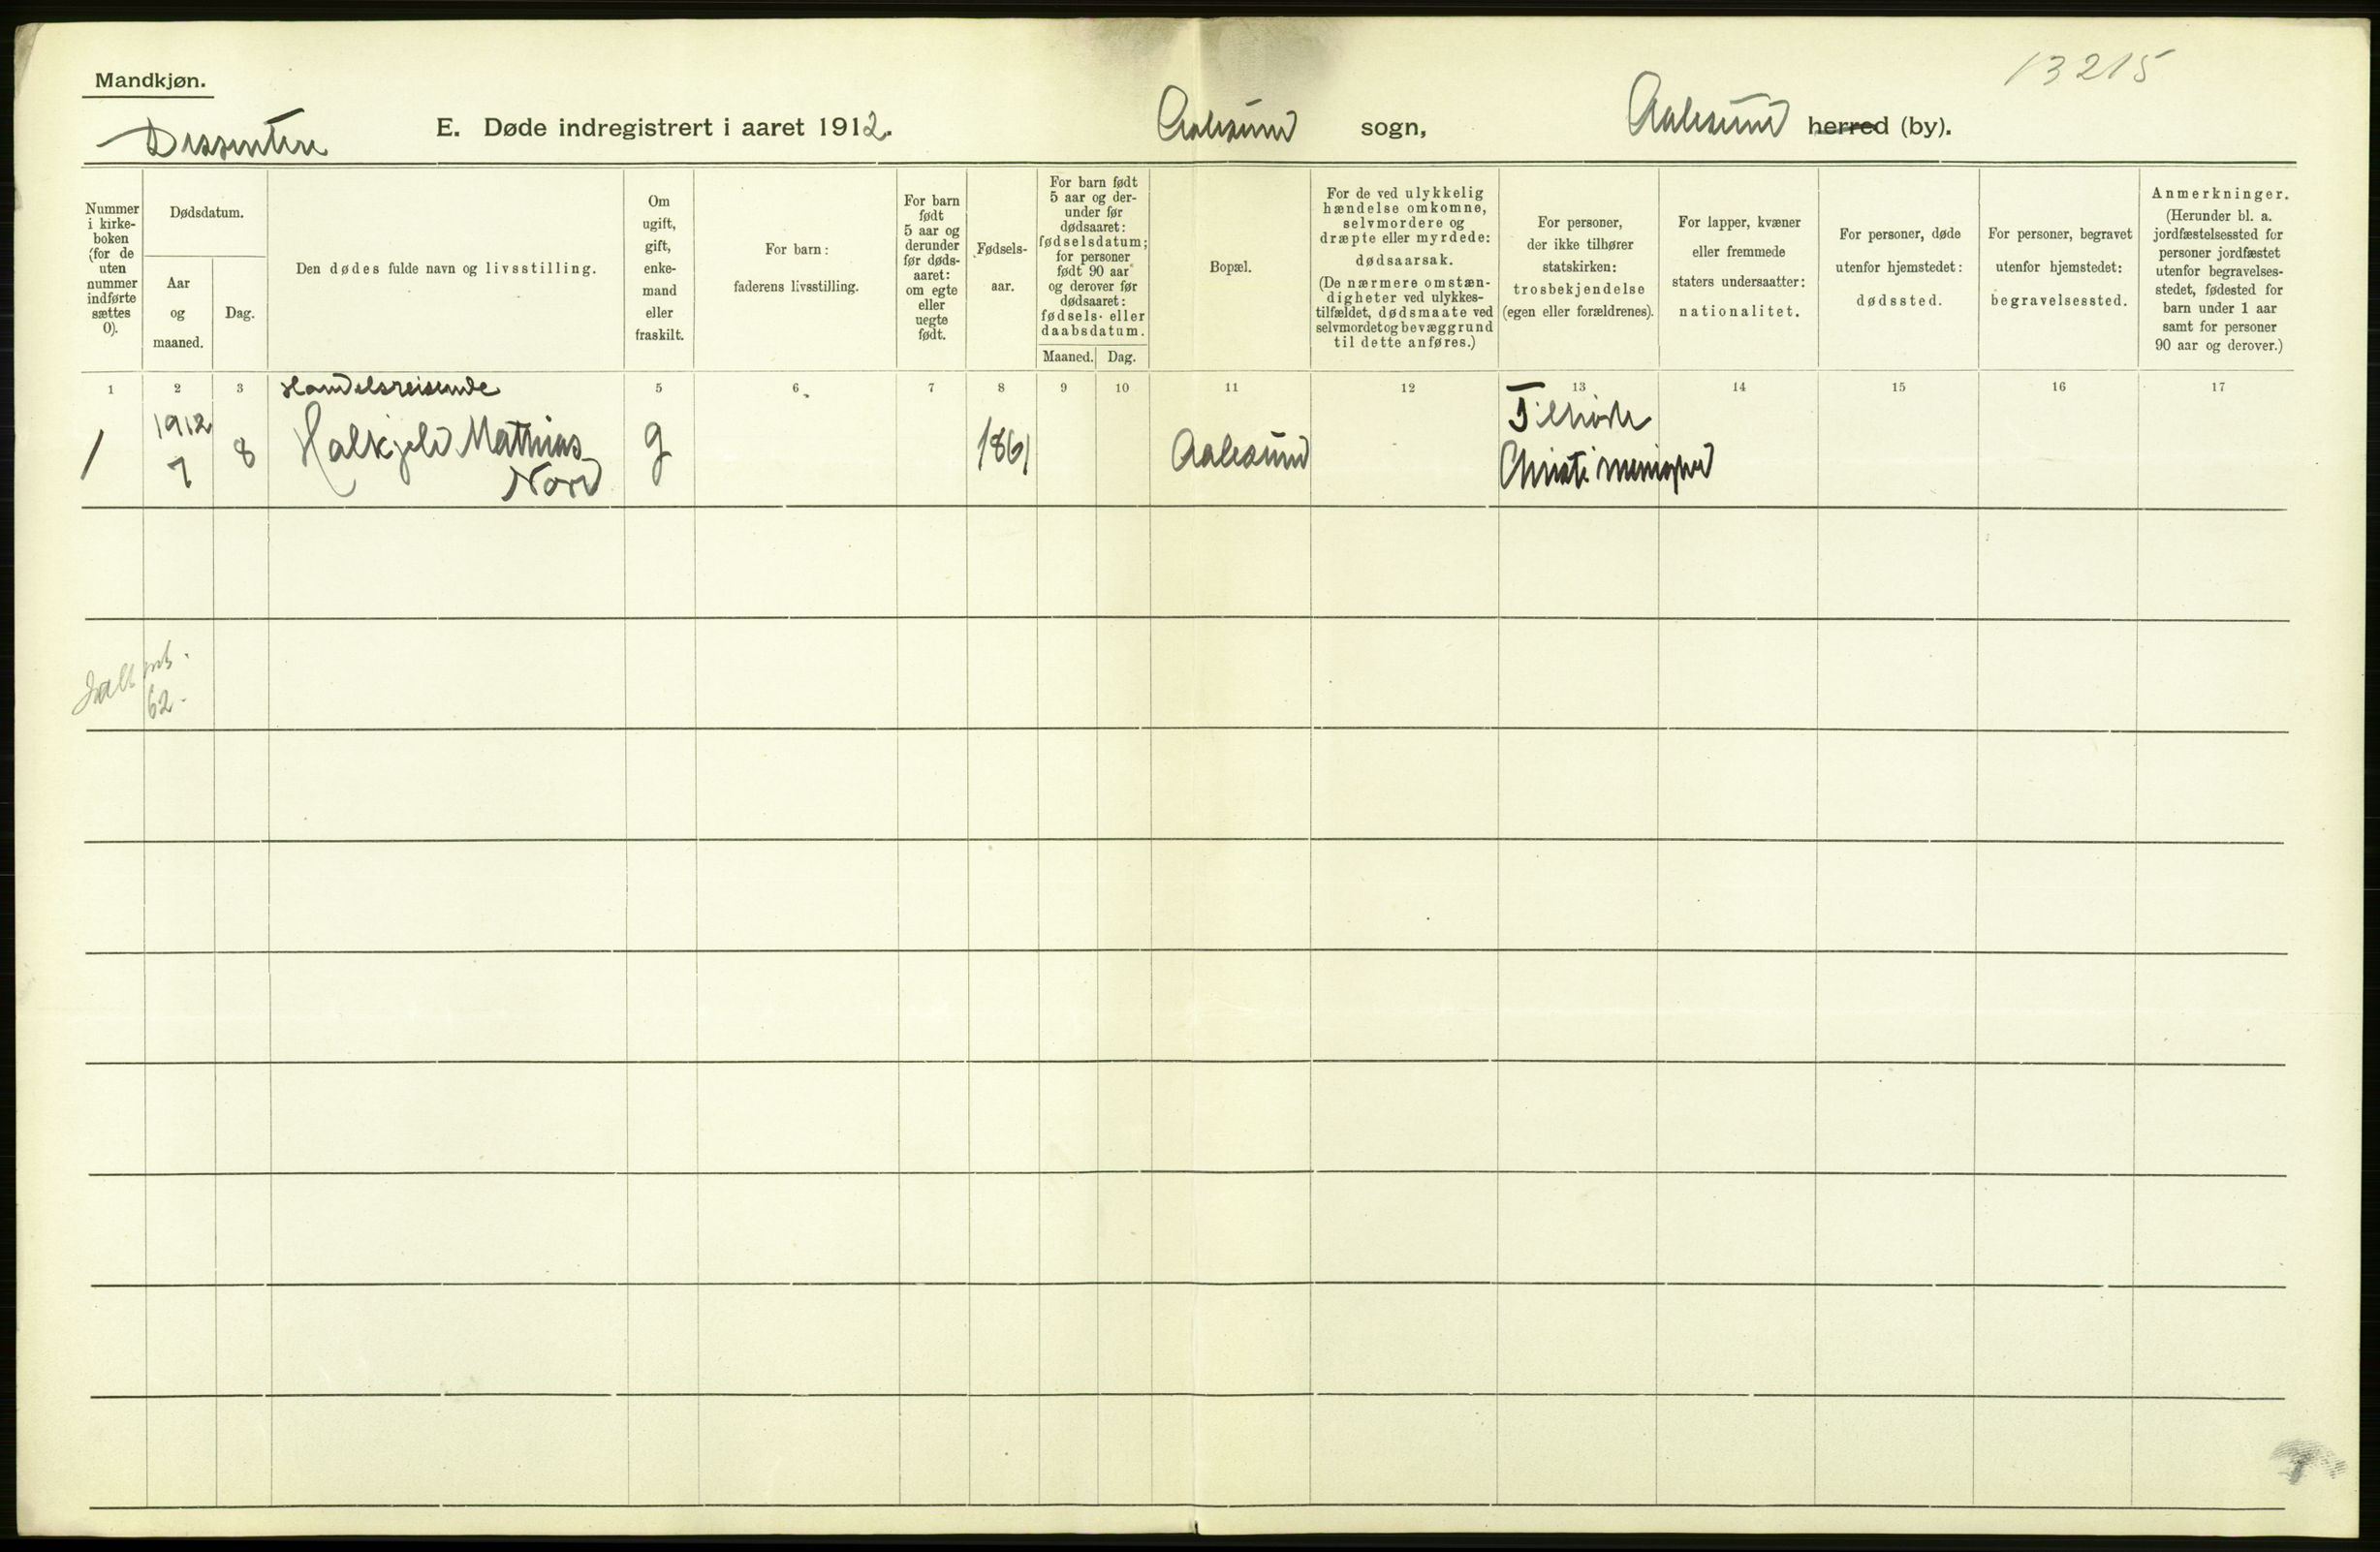 Mandkjøn.
13215
Dissentere
E. Døde indregistrert i aaret 1912. Aalesund sogn, Aalesund herred (by).
Nummer i kirke- boken (for de uten nummer indførte sættes 0).
Dødsdatum.
Aar og maaned.
Dag.
Den dødes fulde navn og livsstilling.
Om ugift, gift, enke- mand eller fraskilt.
For barn: faderens livsstilling.
For barn født 5 aar og derunder før døds- aaret: om egte eller uegte født.
Fødsels- aar.
For barn født 5 aar og der- under før dødsaaret: fødselsdatum; for personer født 90 aar og derover før dødsaaret: fødsels- eller daabsdatum.
Maaned.
Dag.
Bopæl.
For de ved ulykkelig hændelse omkomne, selvmordere og dræpte eller myrdede: dødsaarsak.
(De nærmere omstæn- digheter ved ulykkes- tilfældet, dødsmaate ved selvmordet og bevæggrund til dette anføres.)
For personer, der ikke tilhører statskirken: trosbekjendelse (egen eller forældrenes).
For lapper, kvæner eller fremmede staters undersaatter: nationalitet.
For personer, døde utenfor hjemstedet: dødssted.
For personer, begravet utenfor hjemstedet: begravelsessted.
Anmerkninger.
(Herunder bl. a. jordfæstelsessted for personer jordfæstet utenfor begravelses- stedet, fødested for barn under 1 aar samt for personer 90 aar og derover.)
1 2 3 5 6 7 8 9 10 11 12 13 14 15 16 17
Handelsreisende
1 1912 7 8 Halkjeld Mathias Nord g 1861 Aalesund Tilhørte Christi menighed
62.